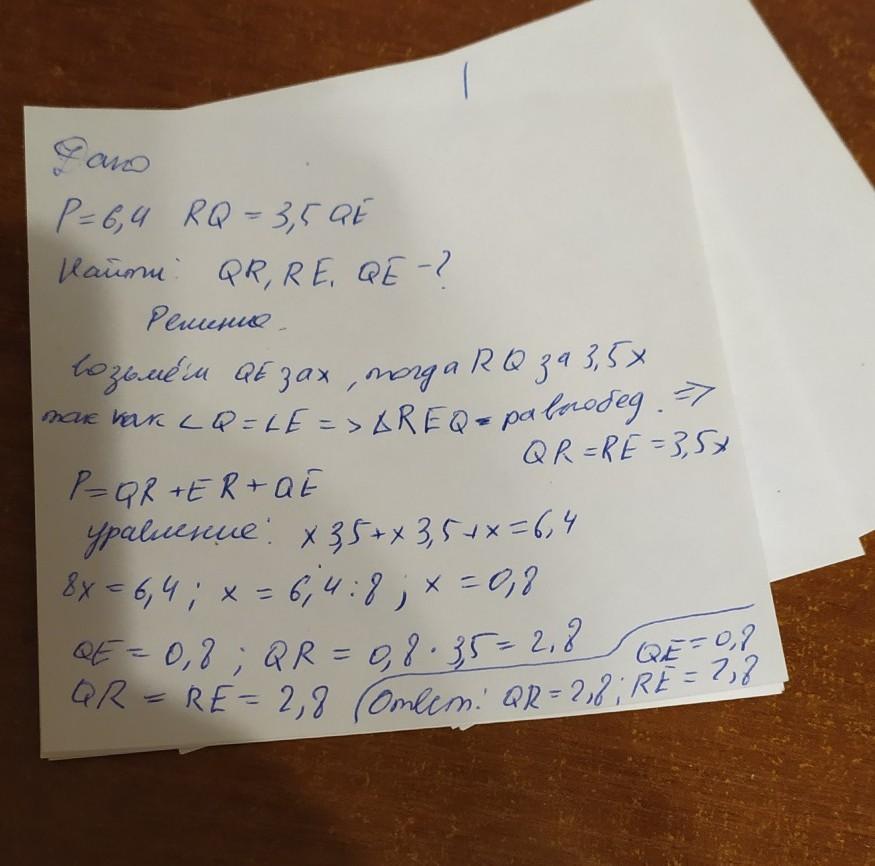 Дано
P=6,4 RQ = 3,5 QE
Найти: QR, RE, QE -?
Решение.
Возьмём QE за x, тогда RQ за 3,5x
так как ∠Q = ∠E => ΔREQ - равнобед. =>
QR = RE = 3,5x
P = QR + ER + QE
уравнение: x 3,5 + x 3,5 + x = 6,4
8x = 6,4 ; x = 6,4 : 8 ; x = 0,8
QE = 0,8 ; QR = 0,8 · 3,5 = 2,8
QR = RE = 2,8
Ответ: QR = 2,8 ; RE = 2,8
QE = 0,8